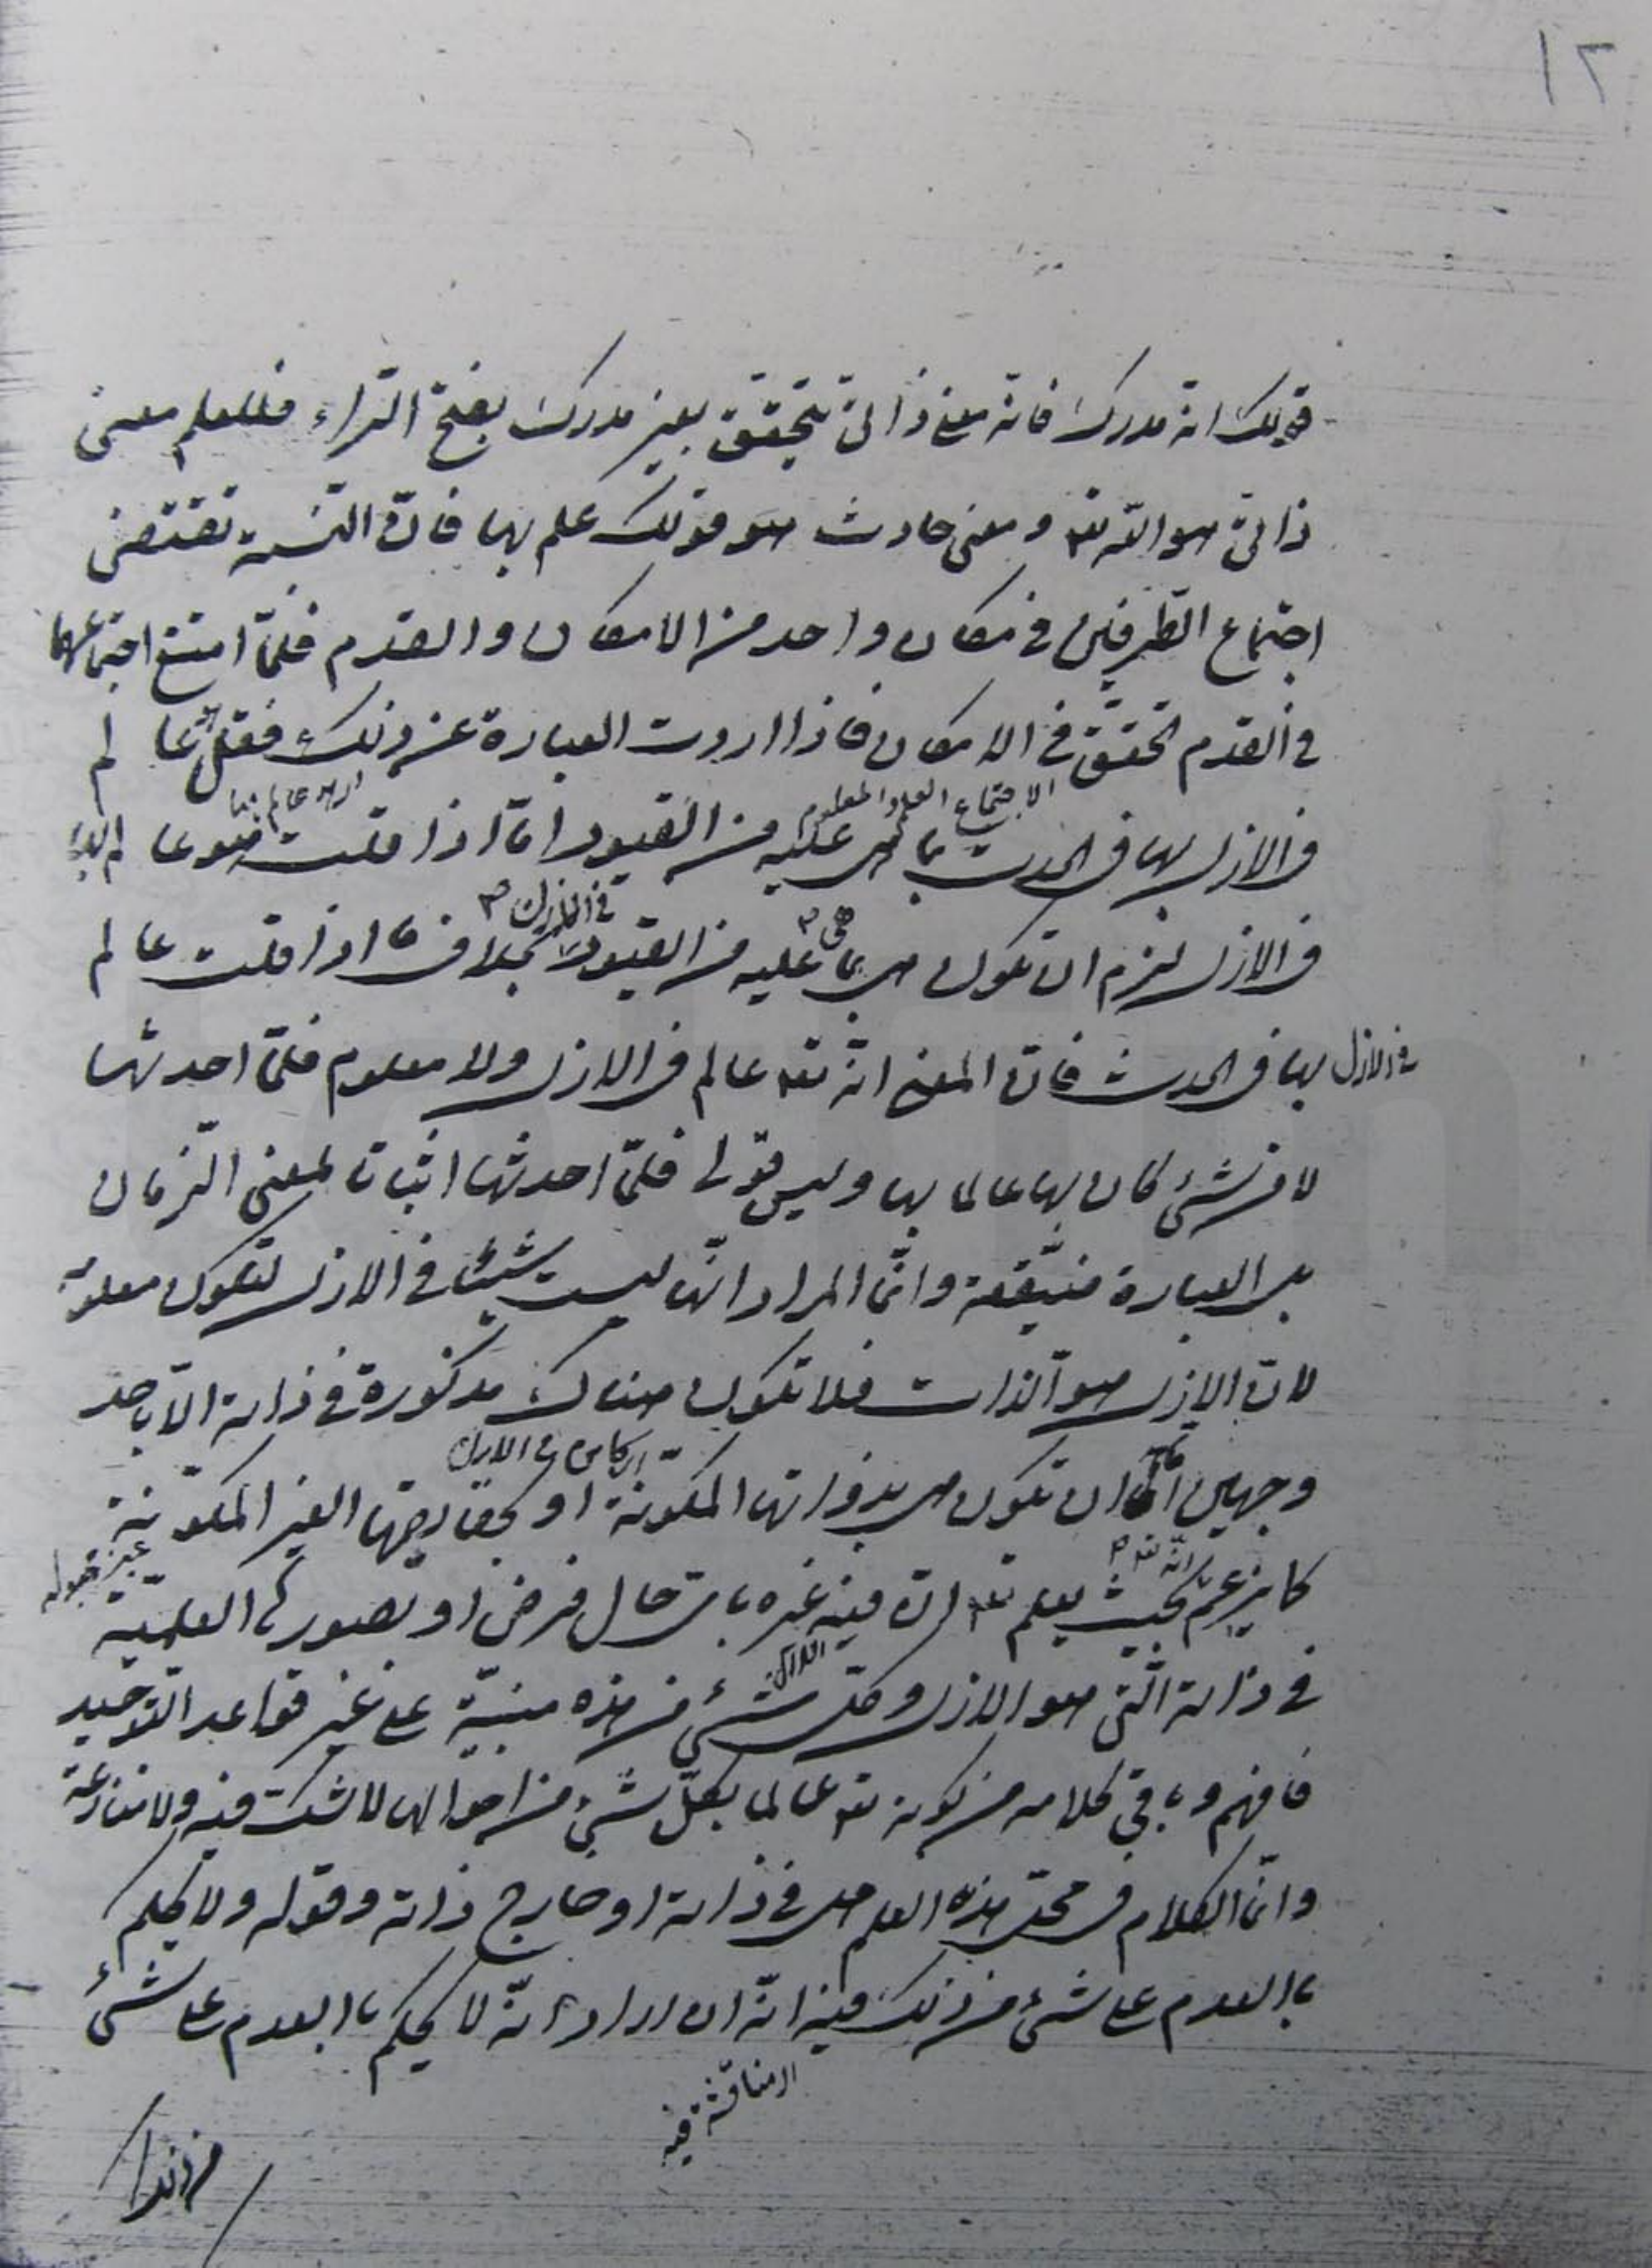 ١٢
قولك انه مدرك فانه معنى ذاتى يتحقق بغير مدرك بفتح الراء فللعلم معنى
ذاتى هو الله تعه و معنى حادث هو قولك علم بها فانّ النسبة تقتضى
اجتماع الطرفين فى مكان واحد من الامكان و القدم فلمّا امتنع اجتماعهما
فى القدم تحقق فى الامكان فاذا اردت العبارة عن ذلك فقل عالم
الاجتماع العلم و المعلوم
فى الازل بها فى الحدث بما هى عليه من القيود امّا اذا قلت هو عالم بها
فى الازل لزم ان تكون هى بما هى عليه من القيود فى الازل بخلاف ما اذا قلت عالم
فى الازل بها فى الحدث فانّ المعنى انّه تعه عالم فى الازل ولا معلوم فلمّا احدثها
لا من شئ كان بها عالما بها وليس قولى فلمّا احدثها اثباتا لمعنى الزمان
بل العبارة ضيّقة وانّما المراد انّها ليست شيئا فى الازل لتكون معلومة
لانّ الازل هو الذات فلا تكون هناك مذكورة فى ذاته الّا باحد
وجهين امّا ان تكون هى بذواتها المكونة او بحقايقها الغير المكوّنة
كما يزعم بحيث يعلم تعه انّ فيه غيره باىّ حال فرض او بصورها العلميّة
فى ذاته الّتى هو الازل وكلّ شئ من هذه مبنيّة على غير قواعد التوحيد
فافهم و باقى كلامه من كونه تعه عالما بكلّ شئ من احوالها لا شكّ فيه ولا منازعة
وانّما الكلام فى محلّ هذه العلم هل فى ذاته او خارج ذاته وقوله ولا يحكم
بالعدم على شئ من ذلك فيه انّه ان اراد انّه لا يحكم بالعدم على شئ
المناقشة فيه
من ذلك